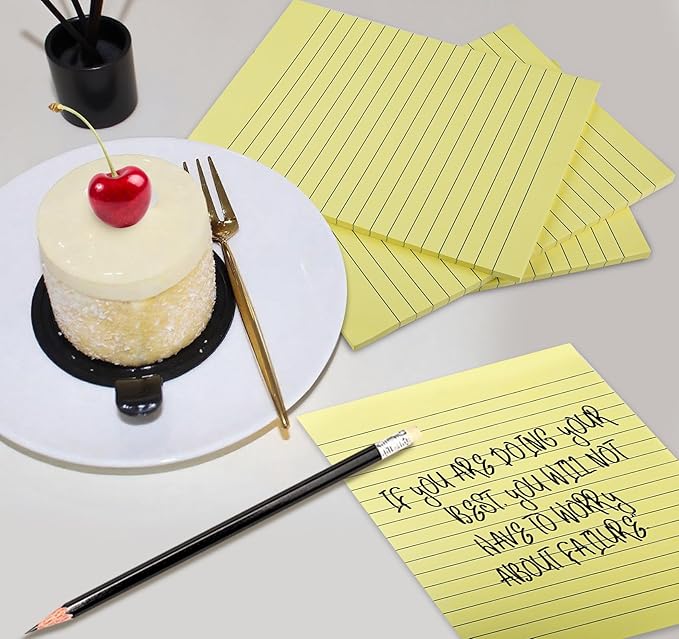 IF YOU ARE DOING YOUR
BEST. YOU WILL NOT
HAVE TO WORRY
ABOUT FAILURE.